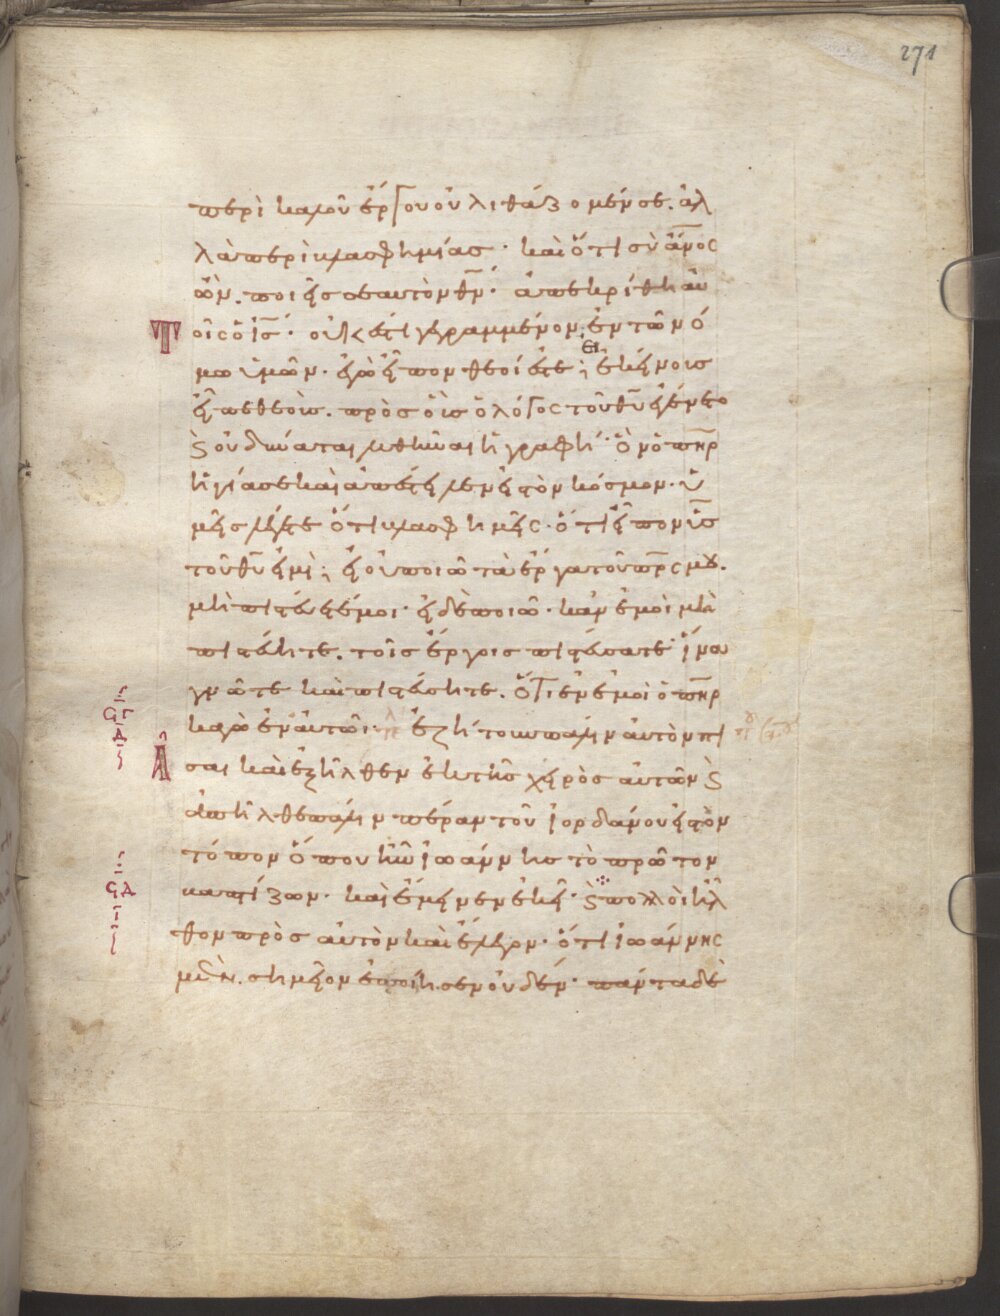 271
περὶ καλοῦ ἔργου οὐ λιθάζομέν σε. ἀλ
λὰ περὶ βλασφημίας · καὶ ὅτι σὺ ἄνος
ὢν. ποιεῖς σεαυτὸν θν̅· ἀπεκρίθη αὐ
τοῖς ὁ ἰς̅· οὐκ ἔστι γεγραμμένον ἐν τῶ νό
μω ὑμῶν · ἐγὼ εἶπον θεοί ἐστε; εἰ ἐκείνοις
εἶπε θεοὺς. πρὸς οὓς ὁ λόγος τοῦ θυ̅ ἐγένετο
ϗ οὐ δύναται λυθῆναι ἡ γραφή· ὃν ὁ πη̅ρ
ἡγίασε καὶ ἀπέστειλεν εἰς τὸν κόσμον · ὑ
μεῖς λέγετε ὅτι βλασφημεῖς · ὅτι εἶπον υἱς̅
τοῦ θυ̅ εἰμὶ; εἰ οὐ ποιῶ τὰ ἔργα τοῦ πρ̅ς μου.
μὴ πιστεύετέ μοι· εἰ δὲ ποιῶ · κἂν ἐμοὶ μὴ
πιστεύητε. τοῖς ἔργοις πιστεύσατε· ἵνα
γνῶτε καὶ πιστεύσητε. ὅτι ἐν ἐμοὶ ὁ πη̅ρ
ϛγ
δ
κἀγὼ ἐν αὐτῶ· ἐζήτουν πάλιν αὐτὸν πι
άσαι καὶ ἐξῆλθεν ἐκ τῆς χειρὸς αὐτῶν ϗ
ἀπῆλθε πάλιν πέραν τοῦ ἰορδάνου εἰς τὸν
τόπον ὅπου ἦν ἰωάννης τὸ πρῶτον
ϛδ
ι
βαπτίζων · καὶ ἔμεινεν ἐκεῖ · ϗ πολλοὶ ἦλ
θον πρὸς αὐτὸν καὶ ἔλεγον · ὅτι ἰωάννης
μὲν. σημεῖον ἐποίησεν οὐδέν · πάντα δὲ